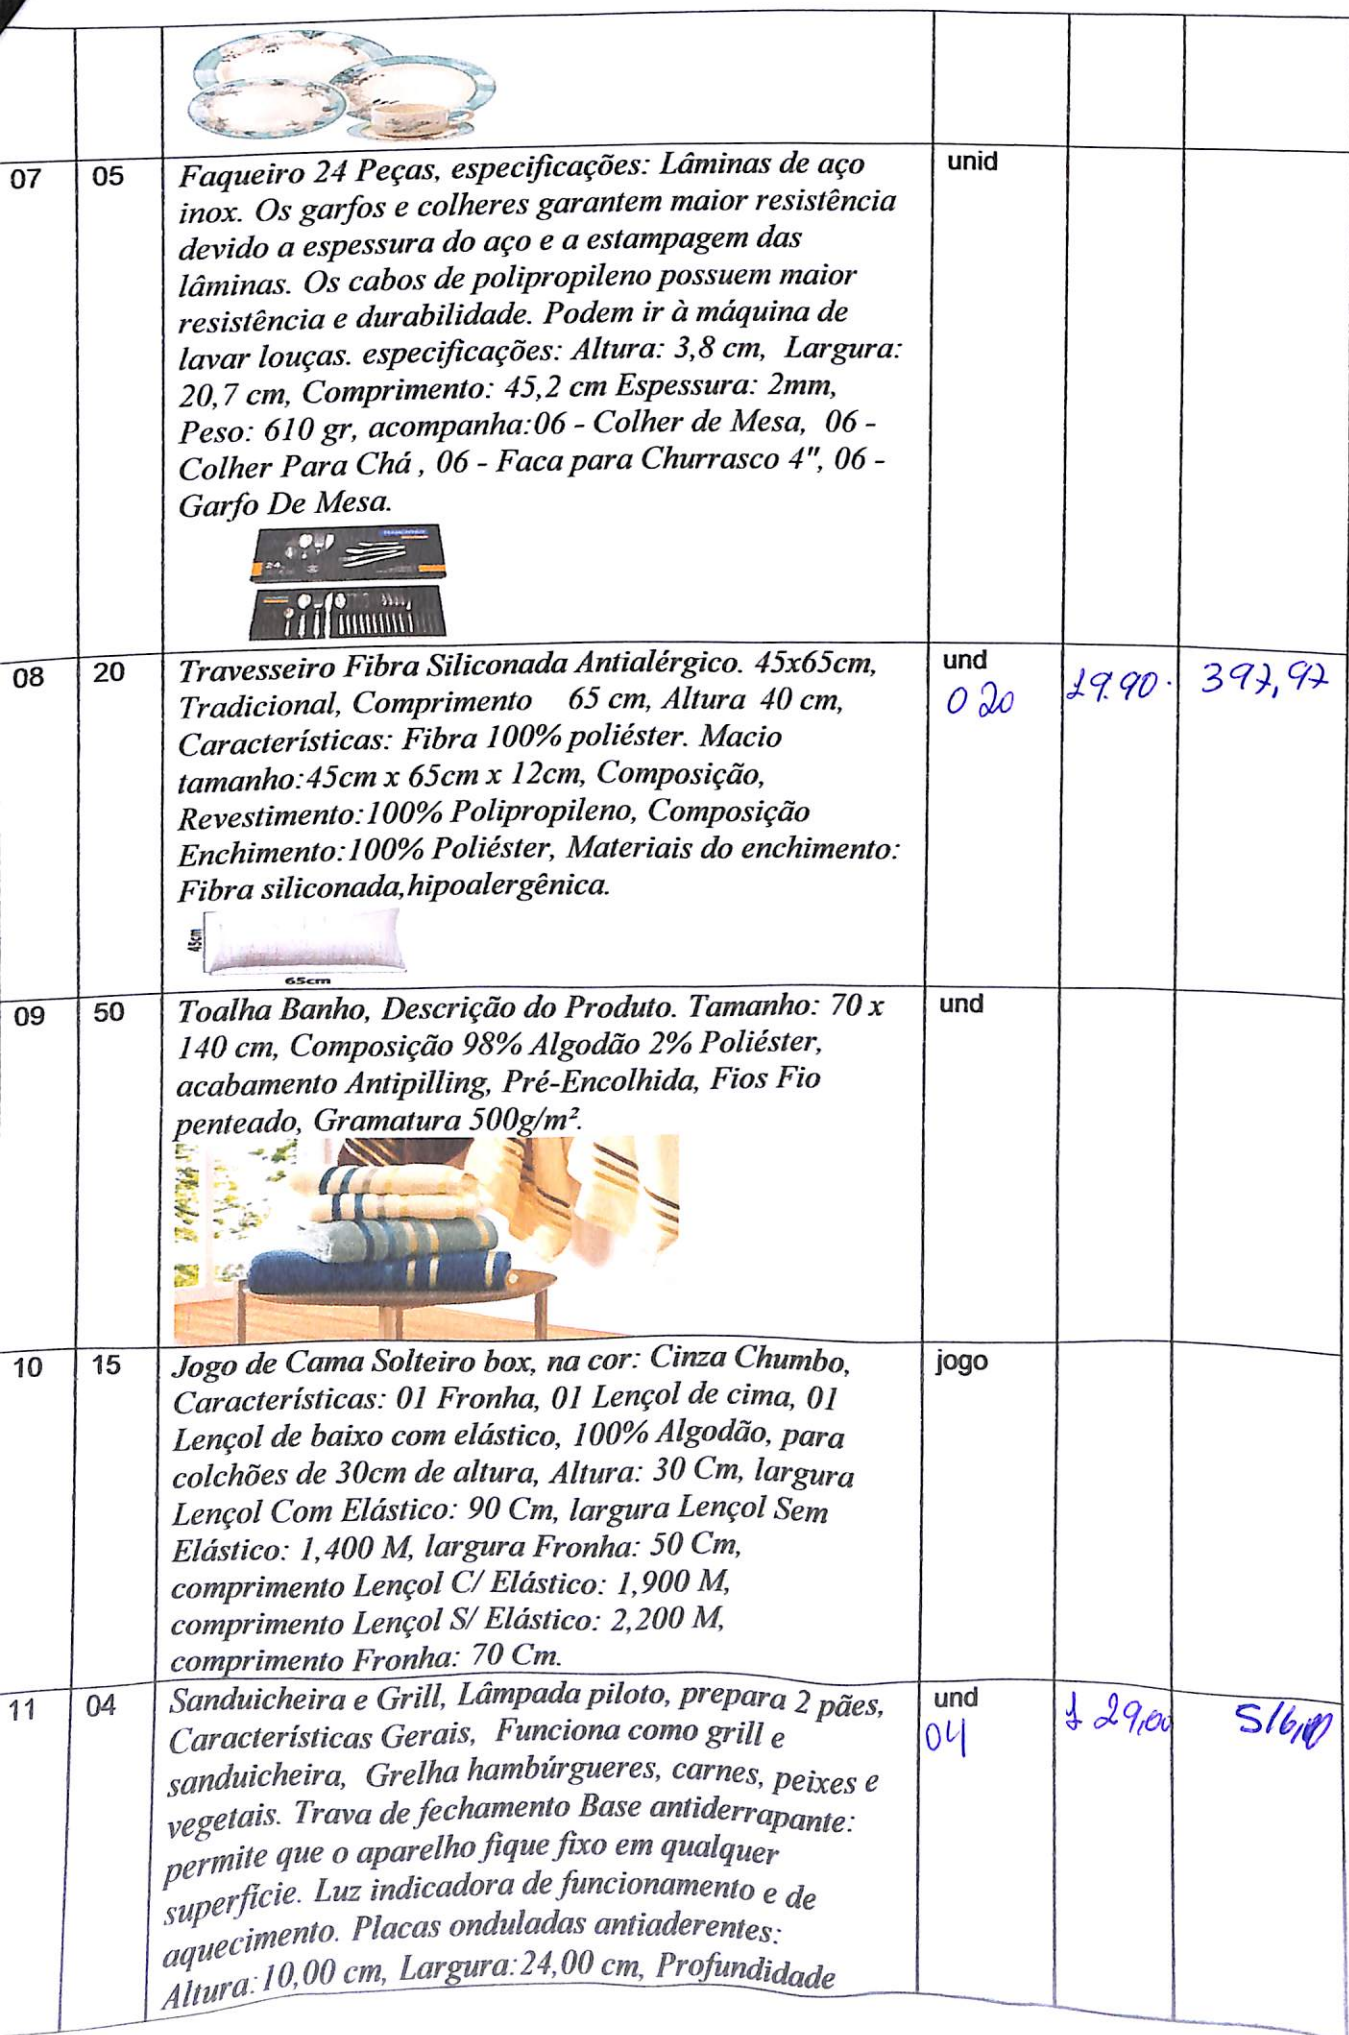 07 05 Faqueiro 24 Peças, especificações: Lâminas de aço unid
inox. Os garfos e colheres garantem maior resistência
devido a espessura do aço e a estampagem das
lâminas. Os cabos de polipropileno possuem maior
resistência e durabilidade. Podem ir à máquina de
lavar louças. especificações: Altura: 3,8 cm, Largura:
20,7 cm, Comprimento: 45,2 cm Espessura: 2mm,
Peso: 610 gr, acompanha:06 - Colher de Mesa, 06 -
Colher Para Chá , 06 - Faca para Churrasco 4", 06 -
Garfo De Mesa.
24
08 20 Travesseiro Fibra Siliconada Antialérgico. 45x65cm, und
Tradicional, Comprimento 65 cm, Altura 40 cm, 020 19.90. 397,97
Características: Fibra 100% poliéster. Macio
tamanho:45cm x 65cm x 12cm, Composição,
Revestimento:100% Polipropileno, Composição
Enchimento:100% Poliéster, Materiais do enchimento:
Fibra siliconada,hipoalergênica.
45cm
65cm
09 50 Toalha Banho, Descrição do Produto. Tamanho: 70 x und
140 cm, Composição 98% Algodão 2% Poliéster,
acabamento Antipilling, Pré-Encolhida, Fios Fio
penteado, Gramatura 500g/m².
10 15 Jogo de Cama Solteiro box, na cor: Cinza Chumbo, jogo
Características: 01 Fronha, 01 Lençol de cima, 01
Lençol de baixo com elástico, 100% Algodão, para
colchões de 30cm de altura, Altura: 30 Cm, largura
Lençol Com Elástico: 90 Cm, largura Lençol Sem
Elástico: 1,400 M, largura Fronha: 50 Cm,
comprimento Lençol C/ Elástico: 1,900 M,
comprimento Lençol S/ Elástico: 2,200 M,
comprimento Fronha: 70 Cm.
11 04 Sanduicheira e Grill, Lâmpada piloto, prepara 2 pães, und
Características Gerais, Funciona como grill e 04 129,00 516,00
sanduicheira, Grelha hambúrgueres, carnes, peixes e
vegetais. Trava de fechamento Base antiderrapante:
permite que o aparelho fique fixo em qualquer
superfície. Luz indicadora de funcionamento e de
aquecimento. Placas onduladas antiaderentes:
Altura:10,00 cm, Largura:24,00 cm, Profundidade